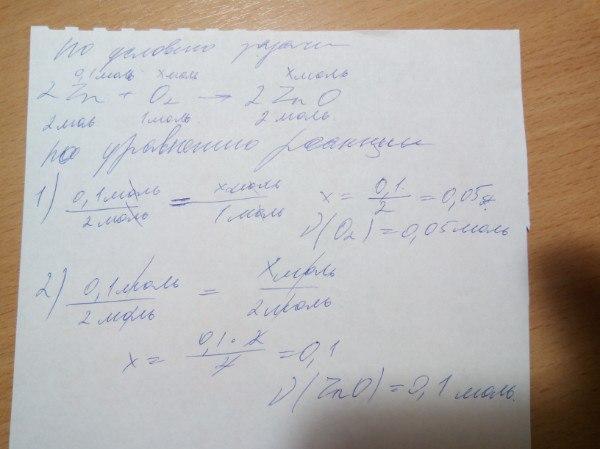 по условию задачи
0,1 моль x моль x моль
2 Zn + O₂ → 2 ZnO
2 моль 1 моль 2 моль
по уравнению реакции
1) 0,1 моль / 2 моль = x моль / 1 моль x = 0,1 / 2 = 0,05
ν(O₂) = 0,05 моль
2) 0,1 моль / 2 моль = x моль / 2 моль
x = 0,1 · 2 / 2 = 0,1
ν(ZnO) = 0,1 моль.